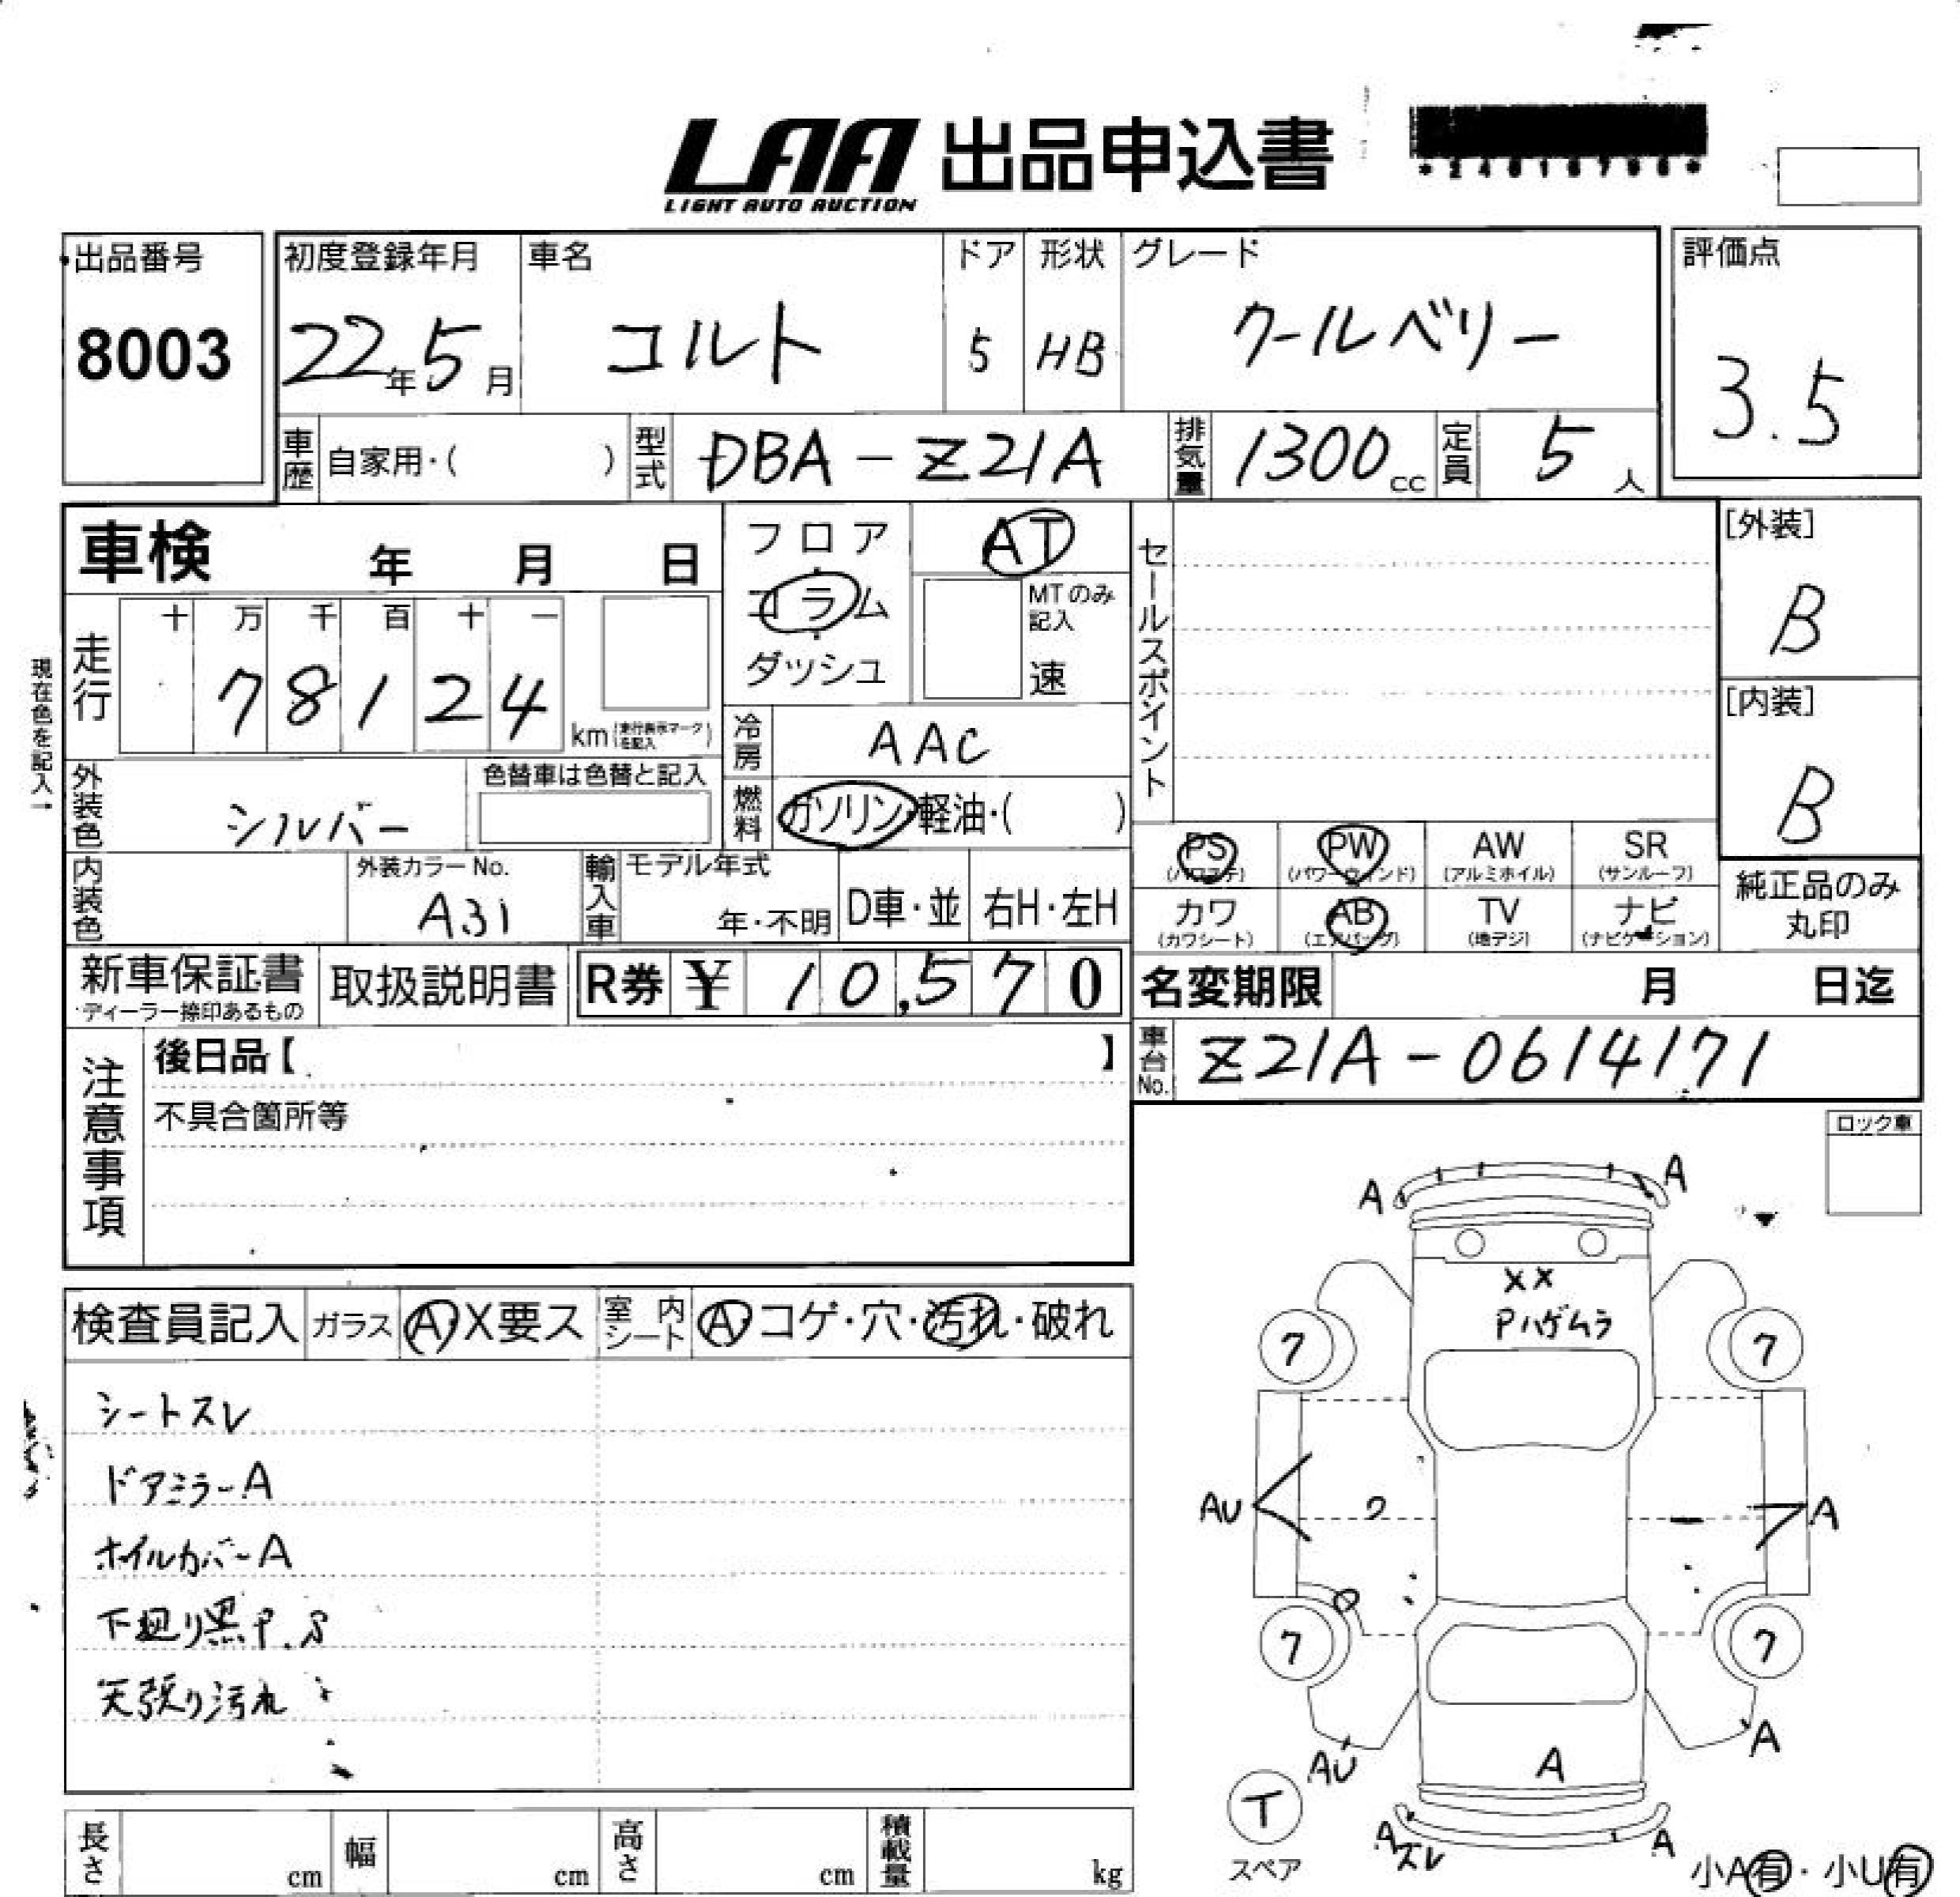 LAA 出品申込書
LIGHT AUTO AUCTION
出品番号
8003
初度登録年月
22年5月
車名
コルト
ドア
5
形状
HB
グレード
クールベリー
評価点
3.5
車歴 自家用・( )
型式 DBA-Z21A
排気量 1300cc
定員 5人
車検 年 月 日
フロア・コラム・ダッシュ
AT
MTのみ記入
速
セールスポイント
[外装]
B
[内装]
B
現在色を記入→
走行
十 万 千 百 十 一
7 8 1 2 4 km
冷房 AAC
外装色 シルバー
色替車は色替と記入
燃料 ガソリン・軽油・( )
内装色
外装カラーNo.
A31
輸入車
モデル年式
年・不明
D車・並
右H・左H
PS PW
(パワーウィンド)
AW
(アルミホイル)
SR
(サンルーフ)
カワ
(カワシート)
AB
(エアバッグ)
TV
(地デジ)
ナビ
(ナビゲーション)
純正品のみ
丸印
新車保証書
・ディーラー捺印あるもの
取扱説明書
R券 ¥ 10,570
名変期限 月 日迄
車台No. Z21A-0614171
注意事項
後日品【 】
不具合箇所等
ロック車
検査員記入 ガラス A・X要ス
室内シート A・コゲ・穴・汚れ・破れ
シートスレ
ドアミラーA
ホイルカバーA
下廻り黒P.S
天張り汚れ
A A
XX
Pハゲムラ
7 7
AU A
7 7
AU A A
T
スペア
Aスレ A
小A有・小U有
長さ cm
幅 cm
高さ cm
積載量 kg